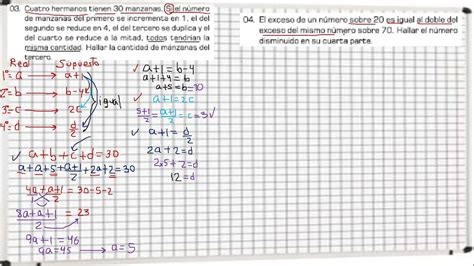 03. Cuatro hermanos tienen 30 manzanas. Si el número
de manzanas del primero se incrementa en 1, el del
segundo se reduce en 4, el del tercero se duplica y el
del cuarto se reduce a la mitad, todos tendrían la
misma cantidad. Hallar la cantidad de manzanas del
tercero.
Real Supuesto
1º= a → a+1
2º= b → b-4
3º= c → 2c
4º= d → d/2
igual
✓ a+b+c+d=30
a+a+5+a+1/2+2a+2=30
4a+a+1/2=30-5-2
8a+a+1/2=23
9a+1=46
9a=45 → a=5
✓ a+1=b-4
a+1+4=b
a+5=b=10
✓ a+1=2c
5+1/2=a+1/2=c=3✓
✓ a+1=d/2
2a+2=d
2x5+2=d
12=d
04. El exceso de un número sobre 20 es igual al doble del
exceso del mismo número sobre 70. Hallar el número
disminuido en su cuarta parte.